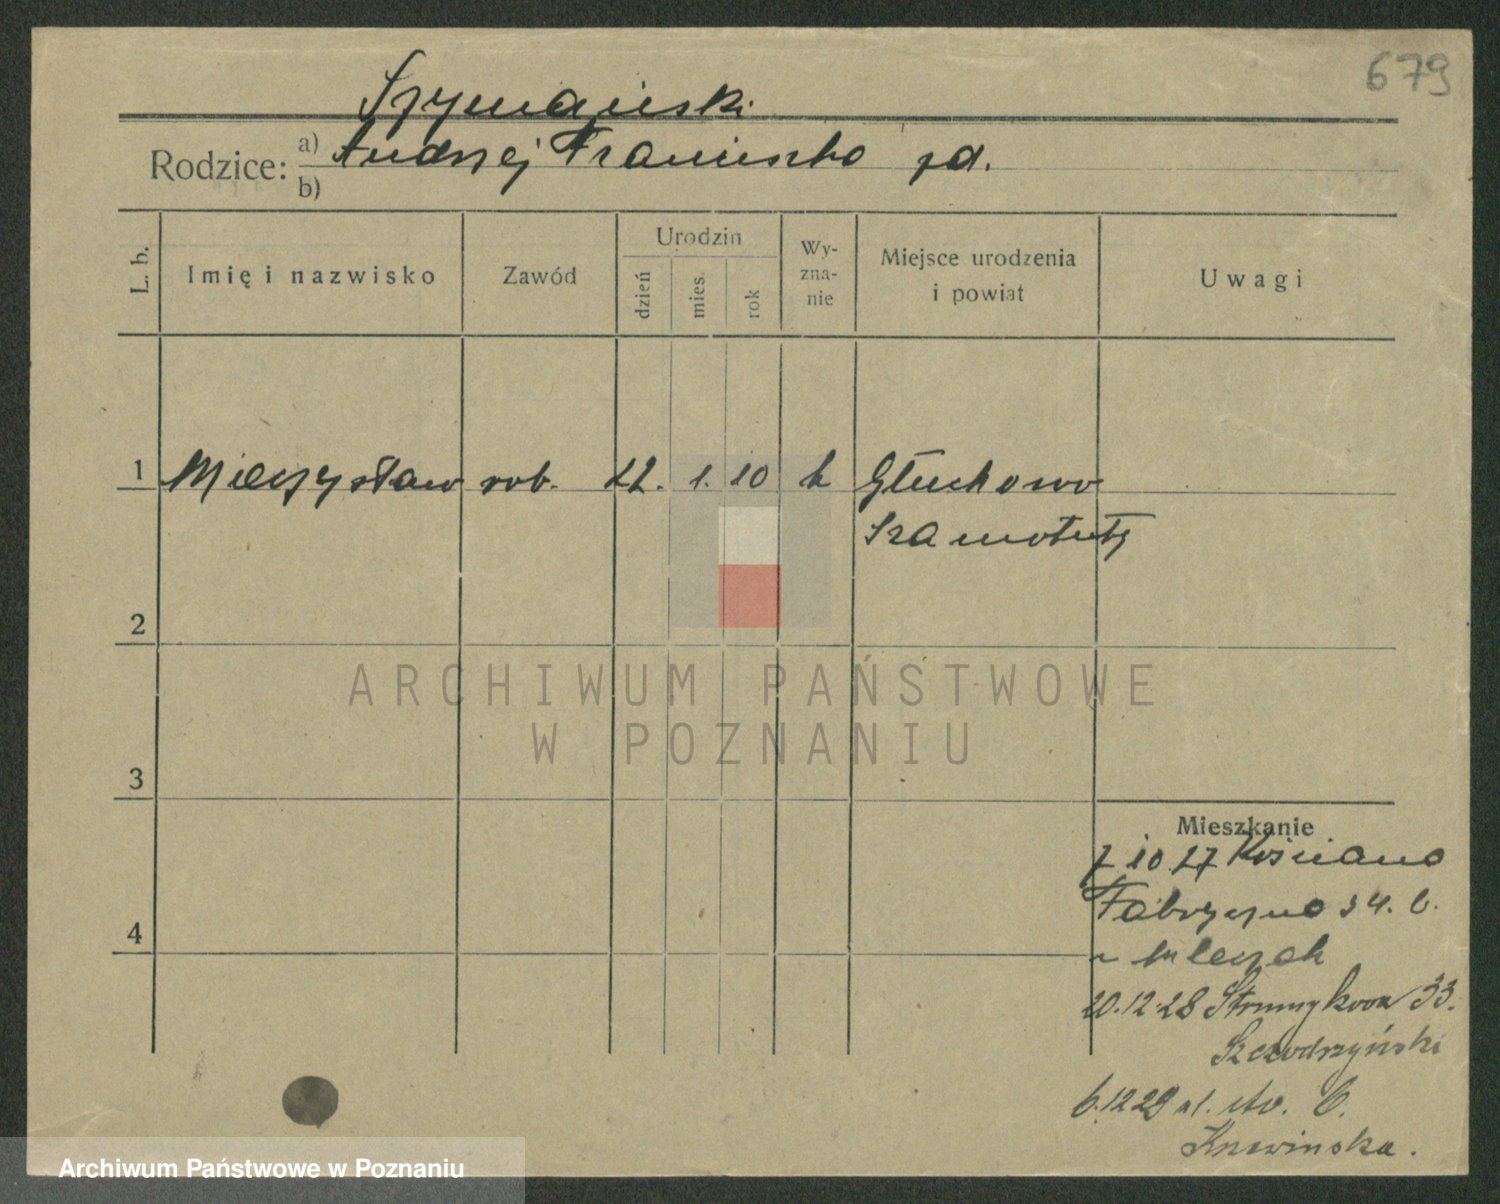 679
Szymański
Rodzice: a) Andrzej Franciszka
b)
L. b.
Imię i nazwisko
Zawód
Urodzin
dzień
mies.
rok
Wy-
zna-
nie
Miejsce urodzenia
i powiat
Uwagi
1 Mieczysław rob. 22. 1. 10 k Głuchowo
Szamotuły
2
3
4
ARCHIWUM PAŃSTWOWE
W POZNANIU
Mieszkanie
7 10 27 Kościana
Fabryczna 34.
20.12.28 Strumykowa 33.
Szczodrzyński
6.12 29
Archiwum Państwowe w Poznaniu